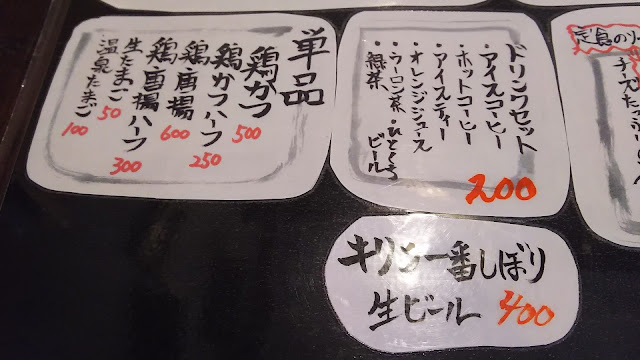 単品
鶏かつ 500
鶏かつハーフ 250
鶏唐揚 600
鶏唐揚ハーフ 300
生たまご 50
温泉たまご 100
ドリンクセット
・アイスコーヒー
・ホットコーヒー
・アイスティー
・オレンジジュース
・ウーロン茶・ひとくちビール
・緑茶
200
キリン一番しぼり
生ビール 400
定食の